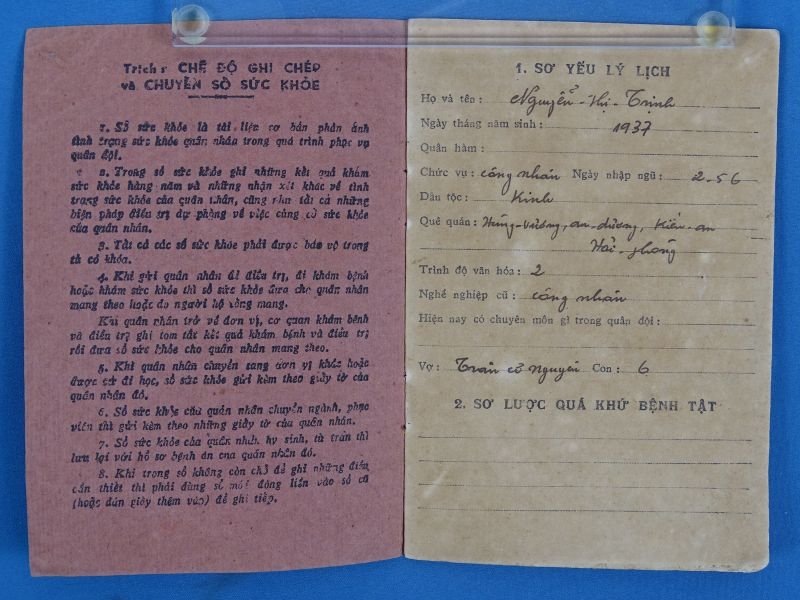 Trích: CHẾ ĐỘ GHI CHÉP
và CHUYỂN SỔ SỨC KHỎE
1. Sổ sức khỏe là tài liệu cơ bản phản ánh
tình trạng sức khỏe quân nhân trong quá trình phục vụ
quân đội.
2. Trong sổ sức khỏe ghi những kết quả khám
sức khỏe hàng năm và những nhận xét khác về tình
trạng sức khỏe của quân nhân, cũng như tất cả những
biện pháp điều trị dự phòng về việc củng cố sức khỏe
của quân nhân.
3. Tất cả các sổ sức khỏe phải được bảo vệ trong
tủ có khóa.
4. Khi gửi quân nhân đi điều trị, đi khám bệnh
hoặc khám sức khỏe thì sổ sức khỏe đưa cho quân nhân
mang theo hoặc do người hộ tống mang.
Khi quân nhân trở về đơn vị, cơ quan khám bệnh
và điều trị ghi tóm tắt kết quả khám bệnh và điều trị
rồi đưa sổ sức khỏe cho quân nhân mang theo.
5. Khi quân nhân chuyển sang đơn vị khác hoặc
được cử đi học, sổ sức khỏe gửi kèm theo giấy tờ của
quân nhân đó.
6. Sổ sức khỏe của quân nhân chuyển ngành, phục
viên thì gửi kèm theo những giấy tờ của quân nhân.
7. Sổ sức khỏe của quân nhân hy sinh, tử trận thì
lưu lại với hồ sơ bệnh án của quân nhân đó.
8. Khi trong sổ không còn chỗ để ghi những điều
cần thiết thì phải dùng sổ mới đóng liền vào sổ cũ
(hoặc dán giấy thêm vào) để ghi tiếp.
1. SƠ YẾU LÝ LỊCH
Họ và tên: Nguyễn-thị-Trịnh
Ngày tháng năm sinh: 1937
Quân hàm:
Chức vụ: công nhân Ngày nhập ngũ: 2-56
Dân tộc: Kinh
Quê quán: Hùng-vương, an-dương, Kiến-an
Hải-phòng
Trình độ văn hóa: 2
Nghề nghiệp cũ: công nhân
Hiện nay có chuyên môn gì trong quân đội:
Vợ: Trần cố Nguyên Con: 6
2. SƠ LƯỢC QUÁ KHỨ BỆNH TẬT